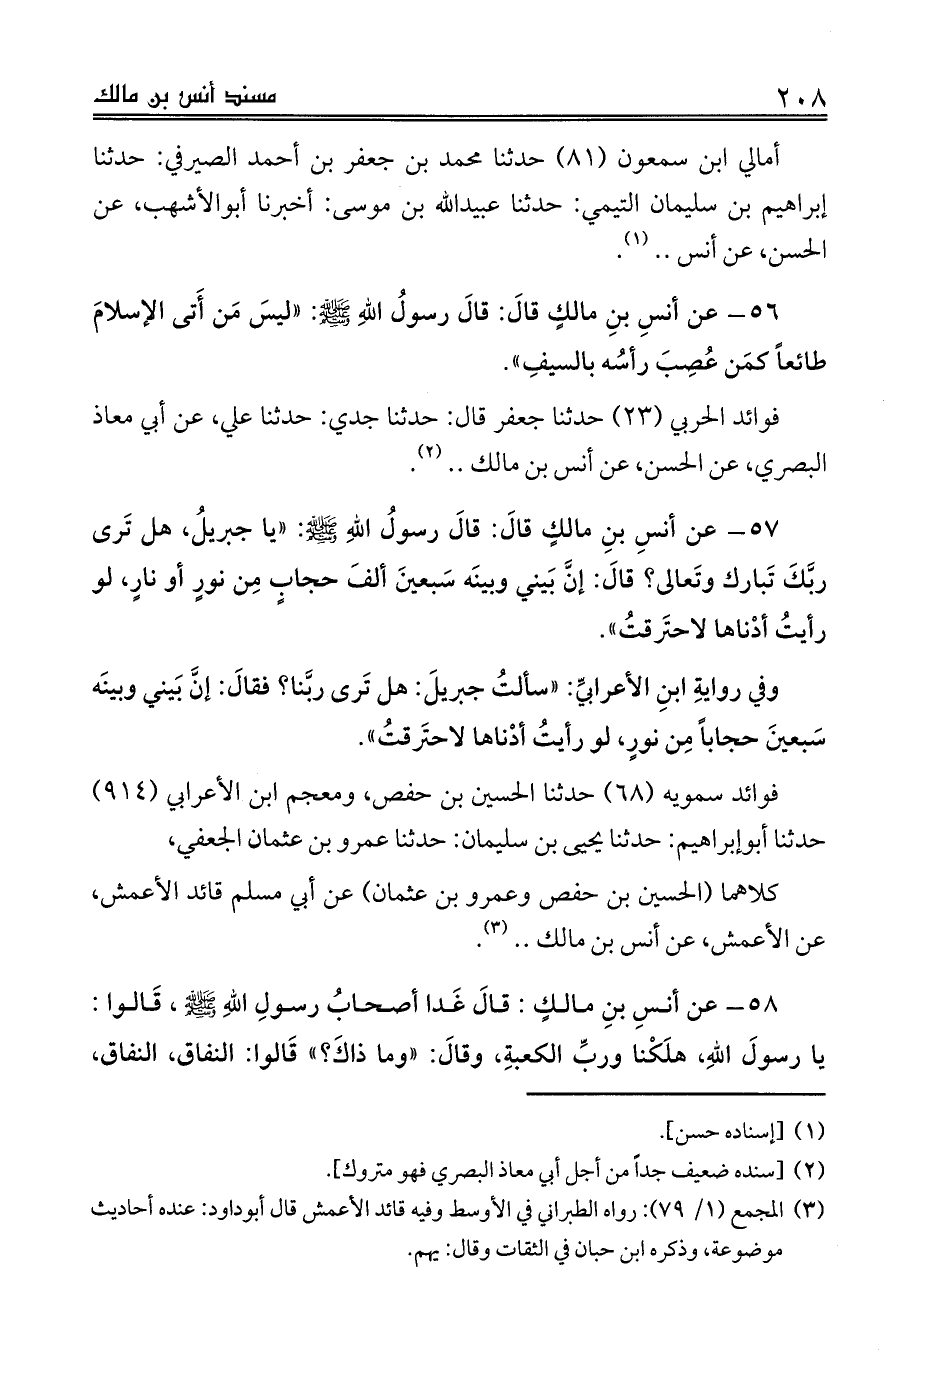 ٢٠٨ مسند أنس بن مالك
أمالي ابن سمعون (٨١) حدثنا محمد بن جعفر بن أحمد الصيرفي: حدثنا
إبراهيم بن سليمان التيمي: حدثنا عبيدالله بن موسى: أخبرنا أبوالأشهب، عن
الحسن، عن أنس .. (١).
٥٦ـ عن أنسِ بنِ مالكٍ قالَ: قالَ رسولُ اللهِ ﷺ: «ليسَ مَن أَتى الإسلامَ
طائعاً كمَن عُصِبَ رأسُه بالسيفِ».
فوائد الحربي (٢٣) حدثنا جعفر قال: حدثنا جدي: حدثنا علي، عن أبي معاذ
البصري، عن الحسن، عن أنس بن مالك .. (٢).
٥٧ـ عن أنسِ بنِ مالكٍ قالَ: قالَ رسولُ اللهِ ﷺ: «يا جبريلُ، هل تَرى
ربَّكَ تَبارك وتَعالى؟ قالَ: إنَّ بَيني وبينَه سَبعينَ ألفَ حجابٍ مِن نورٍ أو نارٍ، لو
رأيتُ أدْناها لاحتَرقتُ».
وفي روايةِ ابنِ الأعرابيِّ: «سألتُ جبريلَ: هل تَرى ربَّنا؟ فقالَ: إنَّ بَيني وبينَه
سَبعينَ حجاباً مِن نورٍ، لو رأيتُ أدْناها لاحتَرقتُ».
فوائد سمويه (٦٨) حدثنا الحسين بن حفص، ومعجم ابن الأعرابي (٩١٤)
حدثنا أبوإبراهيم: حدثنا يحيى بن سليمان: حدثنا عمرو بن عثمان الجعفي،
كلاهما (الحسين بن حفص وعمرو بن عثمان) عن أبي مسلم قائد الأعمش،
عن الأعمش، عن أنس بن مالك .. (٣).
٥٨ـ عن أنسِ بنِ مالكٍ : قالَ غَدا أصحابُ رسولِ اللهِ ﷺ ، قَالوا :
يا رسولَ اللهِ، هلَكْنا وربِّ الكعبةِ، وقالَ: «وما ذاكَ؟» قَالوا: النفاق، النفاق،
(١) [إسناده حسن].
(٢) [سنده ضعيف جداً من أجل أبي معاذ البصري فهو متروك].
(٣) المجمع (١/ ٧٩): رواه الطبراني في الأوسط وفيه قائد الأعمش قال أبوداود: عنده أحاديث
موضوعة، وذكره ابن حبان في الثقات وقال: يهم.